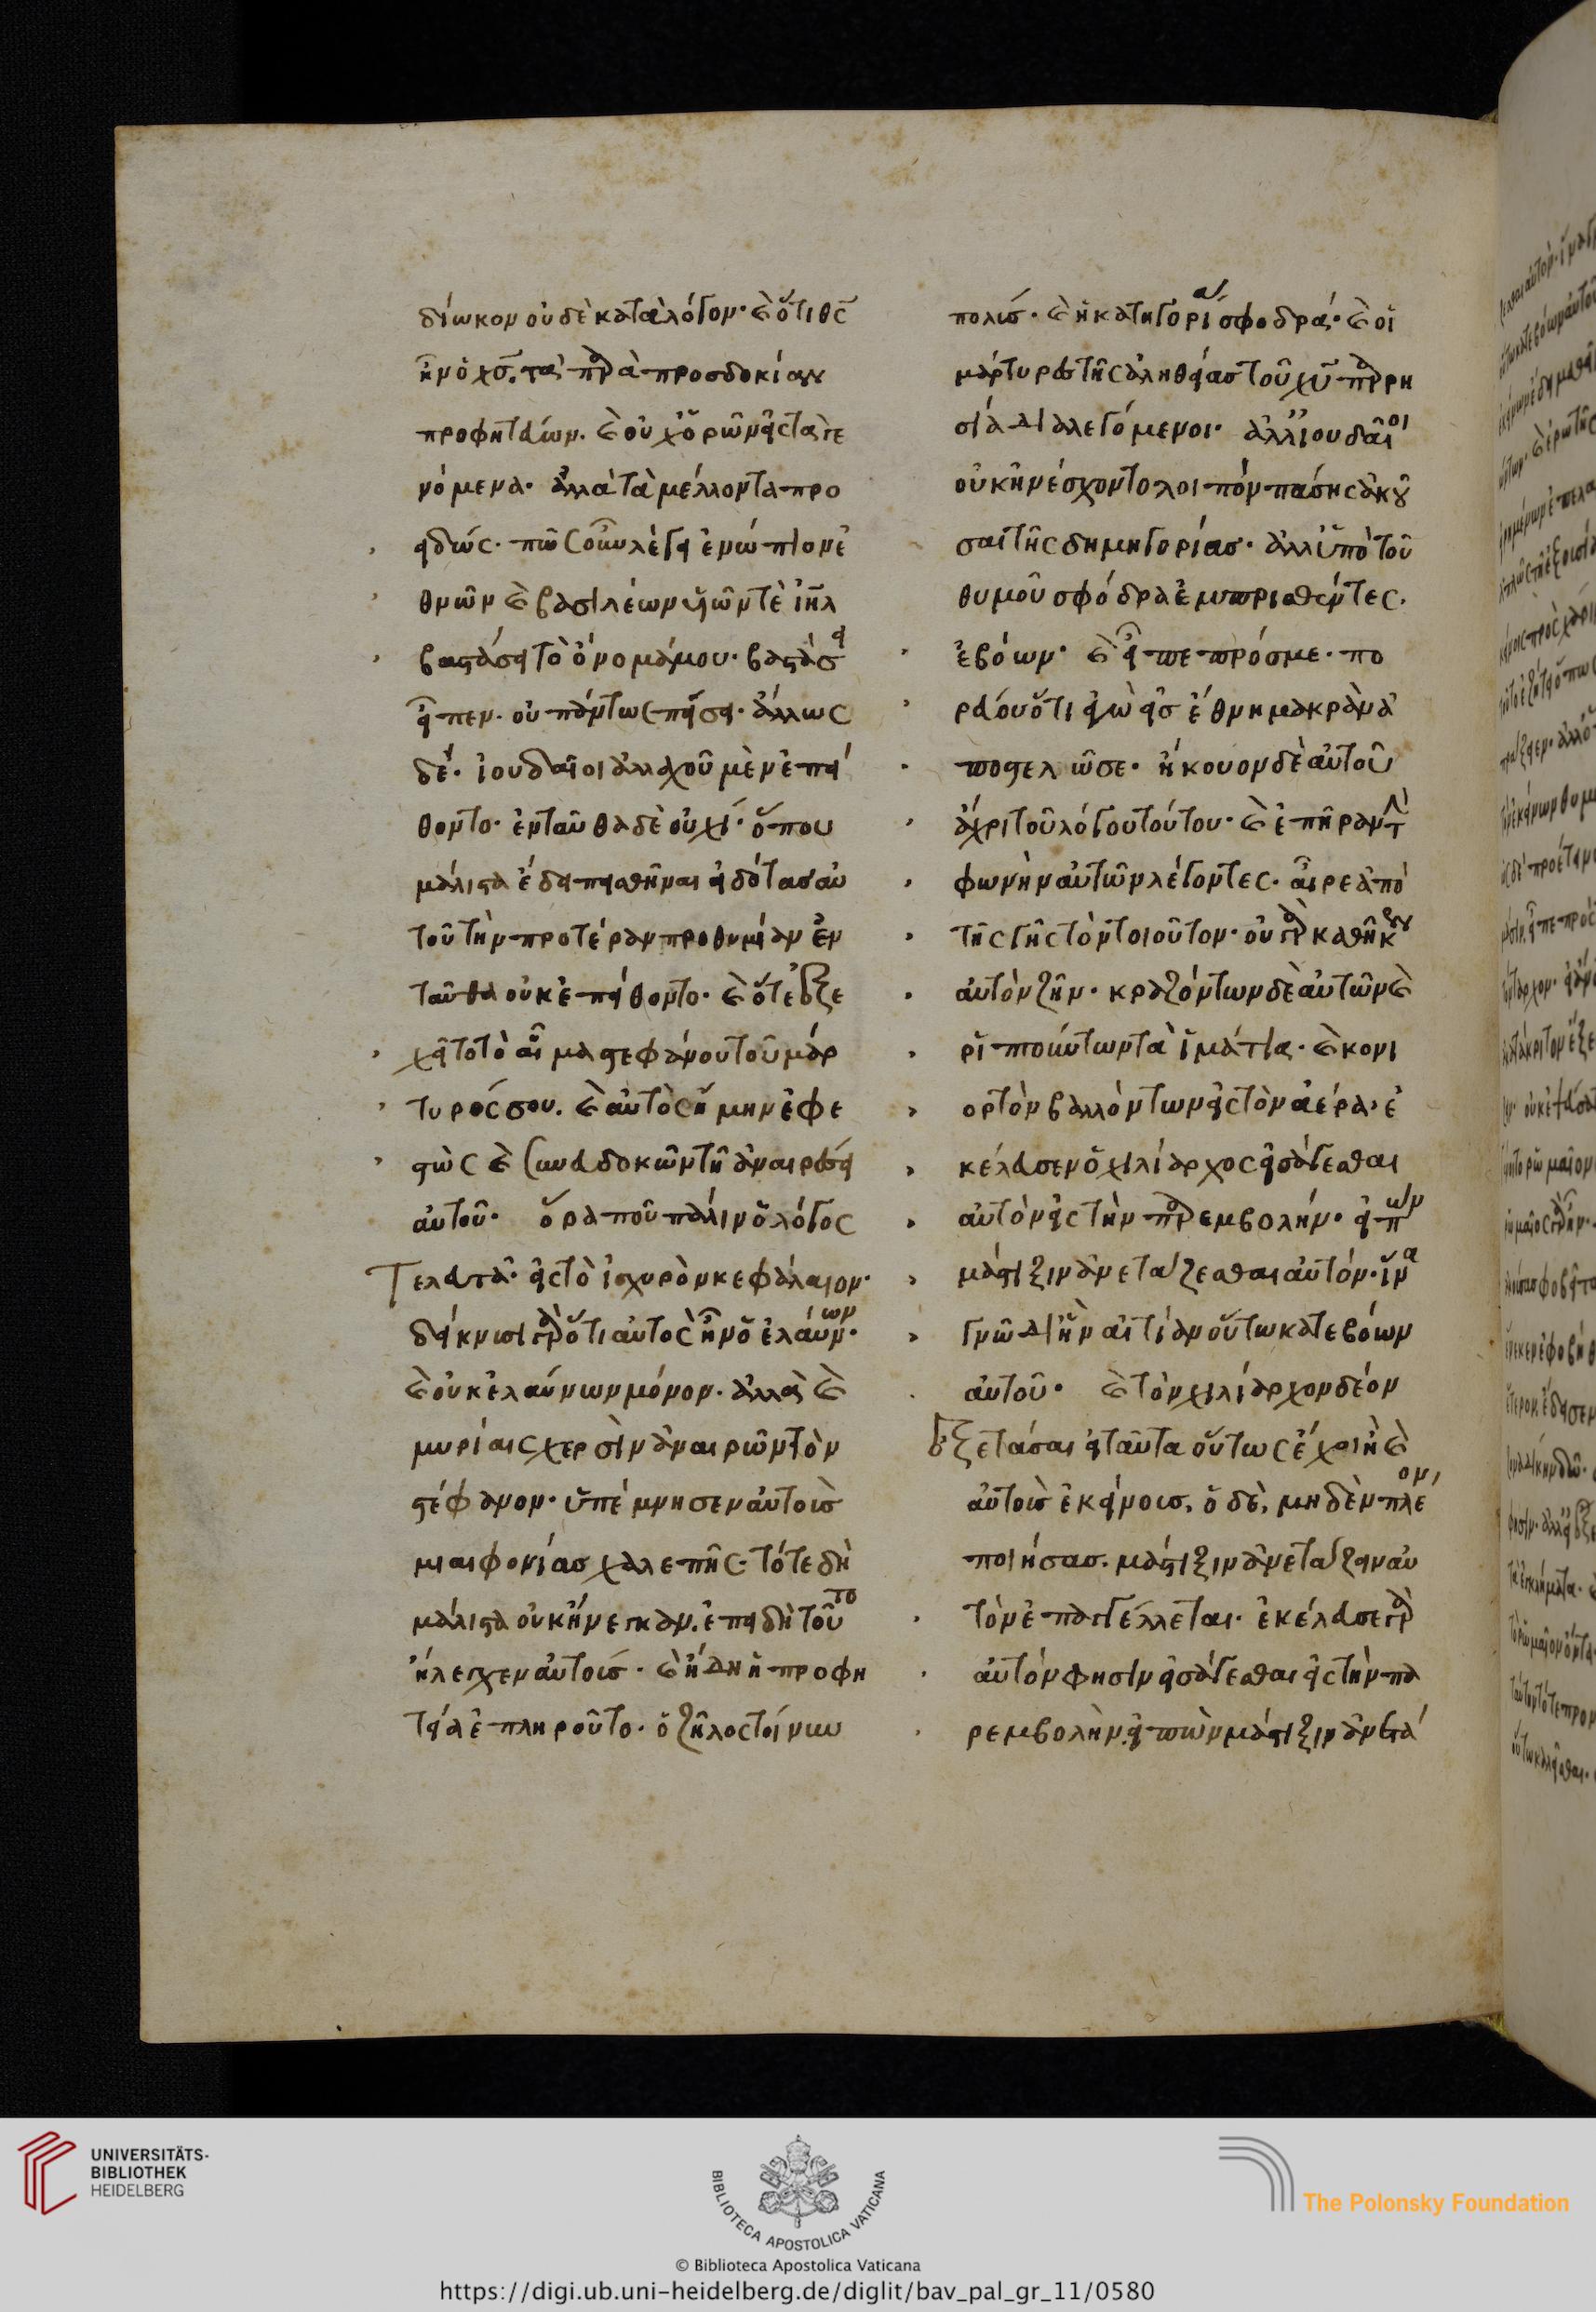 δίωκον οὐδὲ κατὰ λόγον· καὶ ὅτι θς̅
ἦν ὁ χς̅. τὰς παρὰ προσδοκίαν
προφητείων. καὶ οὐχ ὁρῶν εἰς τὰ γε
νόμενα· ἀλλὰ τὰ μέλλοντα προ
ειδώς· πῶς οὖν λέγει ἐνώπιον ἐ
θνῶν καὶ βασιλέων υἱῶν τὲ ἰη̅λ
βαστάσει τὸ ὄνομά μου· βαστάσει
εἶπεν· οὐ πάντως πείσει· ἄλλως
δέ· ἰουδαῖοι ἀλλαχοῦ μὲν ἐπεί
θοντο· ἐνταῦθα δὲ οὐχί· ὅπου
μάλιστα ἔδει πεισθῆναι εἰδότας αὐ
τοῦ τὴν προτέραν προθυμίαν ἐν
ταῦθα οὐκ ἐπείθοντο· καὶ ὅτε ἐξε
χεῖτο τὸ αἷμα στεφάνου τοῦ μάρ
τυρός σου. καὶ αὐτὸς ἤμην ἐφε
στὼς καὶ συνευδοκῶν τῇ ἀναιρέσει
αὐτοῦ· ὅρα ποῦ πάλιν ὁ λόγος
Τελευτᾷ· εἰς τὸ ἰσχυρὸν κεφάλαιον·
δείκνυσι γὰρ ὅτι αὐτὸς ἦν ὁ ἐλαύνων·
καὶ οὐκ ἐλαύνων μόνον· ἀλλὰ καὶ
μυρίαις χερσὶν ἀναιρῶν τὸν
στέφανον· ὑπέμνησεν αὐτοὺς
μιαιφονίας χαλεπῆς· τότε δὴ
μάλιστα οὐκ ἤνεγκαν. ἐπειδὴ τοῦτο
ἤλεγχεν αὐτούς· καὶ ἤδη ἡ προφη
τεία ἐπληροῦτο· ὁ ζῆλος τοίνυν
πολύς· καὶ ἡ κατηγορία σφοδρά· καὶ οἱ
μάρτυρες τῆς ἀληθείας τοῦ χυ̅ παρρη
σία διαλεγόμενοι· ἀλλ' ἰουδαῖοι
οὐκ ἠνέσχοντο λοιπὸν πάσης ἀκοῦ
σαι τῆς δημηγορίας· ἀλλ' ὑπὸ τοῦ
θυμοῦ σφόδρα ἐμπρισθέντες.
ἐβόων· καὶ εἶπε πρός με· πο
ρεύου ὅτι ἐγὼ εἰς ἔθνη μακρὰν ἀ
ποστελῶ σε· ἤκουον δὲ αὐτοῦ
ἄχρι τοῦ λόγου τούτου· καὶ ἐπῆραν τὴν
φωνὴν αὐτῶν λέγοντες· αἶρε ἀπὸ
τῆς γῆς τὸν τοιοῦτον· οὐ γὰρ καθῆκεν
αὐτὸν ζῆν· κραζόντων δὲ αὐτῶν καὶ
ριπτούντων τὰ ἱμάτια· καὶ κονι
ορτὸν βαλλόντων εἰς τὸν ἀέρα· ἐ
κέλευσεν ὁ χιλίαρχος εἰσάγεσθαι
αὐτὸν εἰς τὴν παρεμβολήν· εἰπὼν
μάστιξιν ἀνετάζεσθαι αὐτόν· ἵνα
γνῷ δι' ἣν αἰτίαν οὕτω κατεβόων
αὐτοῦ· καὶ τὸν χιλίαρχον δέον
ἐξετάσαι εἰ ταῦτα οὕτως ἔχοι ἢ καὶ
αὐτοὺς ἐκείνους, ὁ δὲ, μηδὲν πλέον
ποιήσας· μάστιξιν ἀνετάζειν αὐ
τὸν ἐπαγγέλλεται· ἐκέλευσε γὰρ
αὐτὸν φησὶν εἰσάγεσθαι εἰς τὴν πα
ρεμβολὴν. εἰπὼν μάστιξιν ἀνετά
UNIVERSITÄTS-
BIBLIOTHEK
HEIDELBERG
BIBLIOTECA APOSTOLICA VATICANA
The Polonsky Foundation
© Biblioteca Apostolica Vaticana
https://digi.ub.uni-heidelberg.de/diglit/bav_pal_gr_11/0580